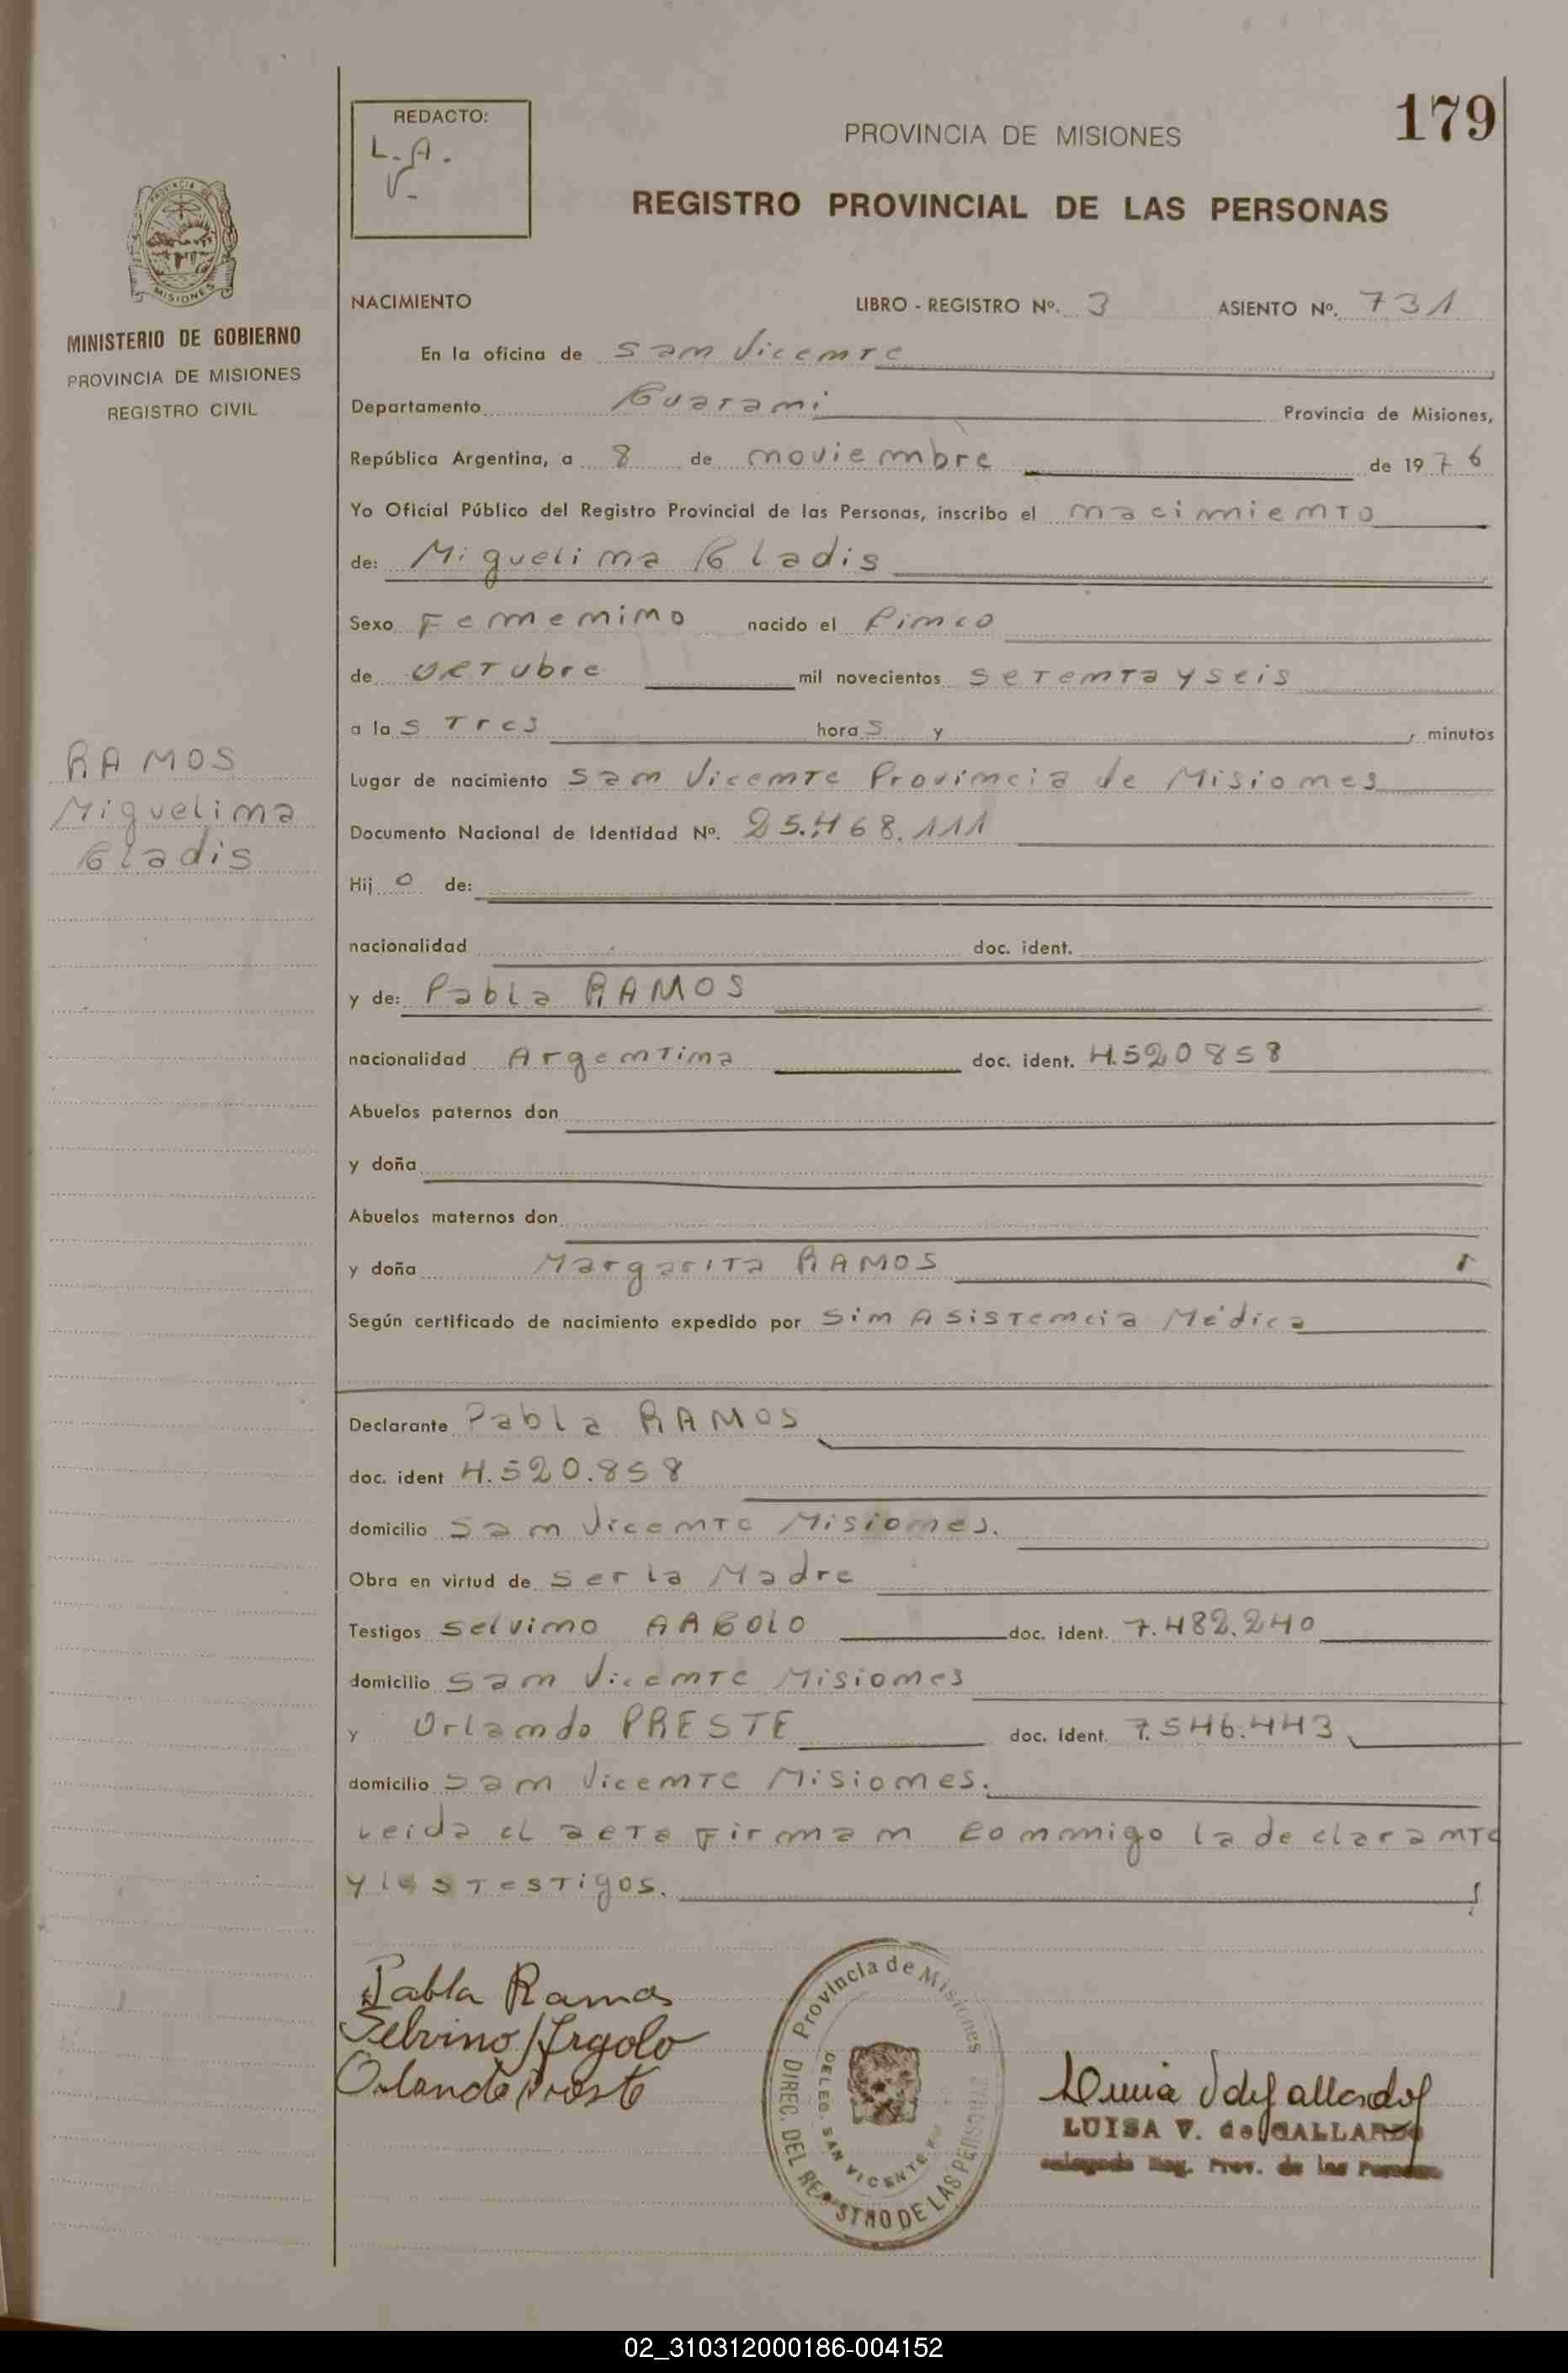 179
REDACTO:
L.A.
V.
PROVINCIA DE MISIONES
REGISTRO PROVINCIAL DE LAS PERSONAS
PROVINCIA DE
MISIONES
MINISTERIO DE GOBIERNO
PROVINCIA DE MISIONES
REGISTRO CIVIL
NACIMIENTO LIBRO - REGISTRO Nº. 3 ASIENTO Nº. 731
En la oficina de San Vicente
Departamento Guarani Provincia de Misiones,
República Argentina, a 8 de noviembre de 1976
Yo Oficial Público del Registro Provincial de las Personas, inscribo el nacimiento
de: Miguelina Gladis
Sexo Femenino nacido el Cinco
de Octubre mil novecientos setenta y seis
a las Tres horas y , minutos
Lugar de nacimiento San Vicente Provincia de Misiones
Documento Nacional de Identidad Nº. 25.468.111
Hijo de:
nacionalidad doc. ident.
y de: Pabla RAMOS
nacionalidad Argentina doc. ident. 4.520858
Abuelos paternos don
y doña
Abuelos maternos don
y doña Margarita RAMOS
Según certificado de nacimiento expedido por Sin Asistencia Médica
Declarante Pabla RAMOS
doc. ident 4.520.858
domicilio San Vicente Misiones.
Obra en virtud de ser la Madre
Testigos Selvino ARGOLO doc. ident. 7.482.240
domicilio San Vicente Misiones
y Orlando PRESTE doc. ident. 7.546.443
domicilio San Vicente Misiones.
Leida el acta Firman conmigo la declarante
y los Testigos.
RAMOS
Miguelina
Gladis
Pabla Ramos
Selvino Argolo
Orlando Preste
Provincia de Misiones
DIREC. DEL REGISTRO DE LAS PERSONAS
DELEG. SAN VICENTE
LUISA V. de GALLARDO
Delegada Reg. Prov. de las Personas
02_310312000186-004152